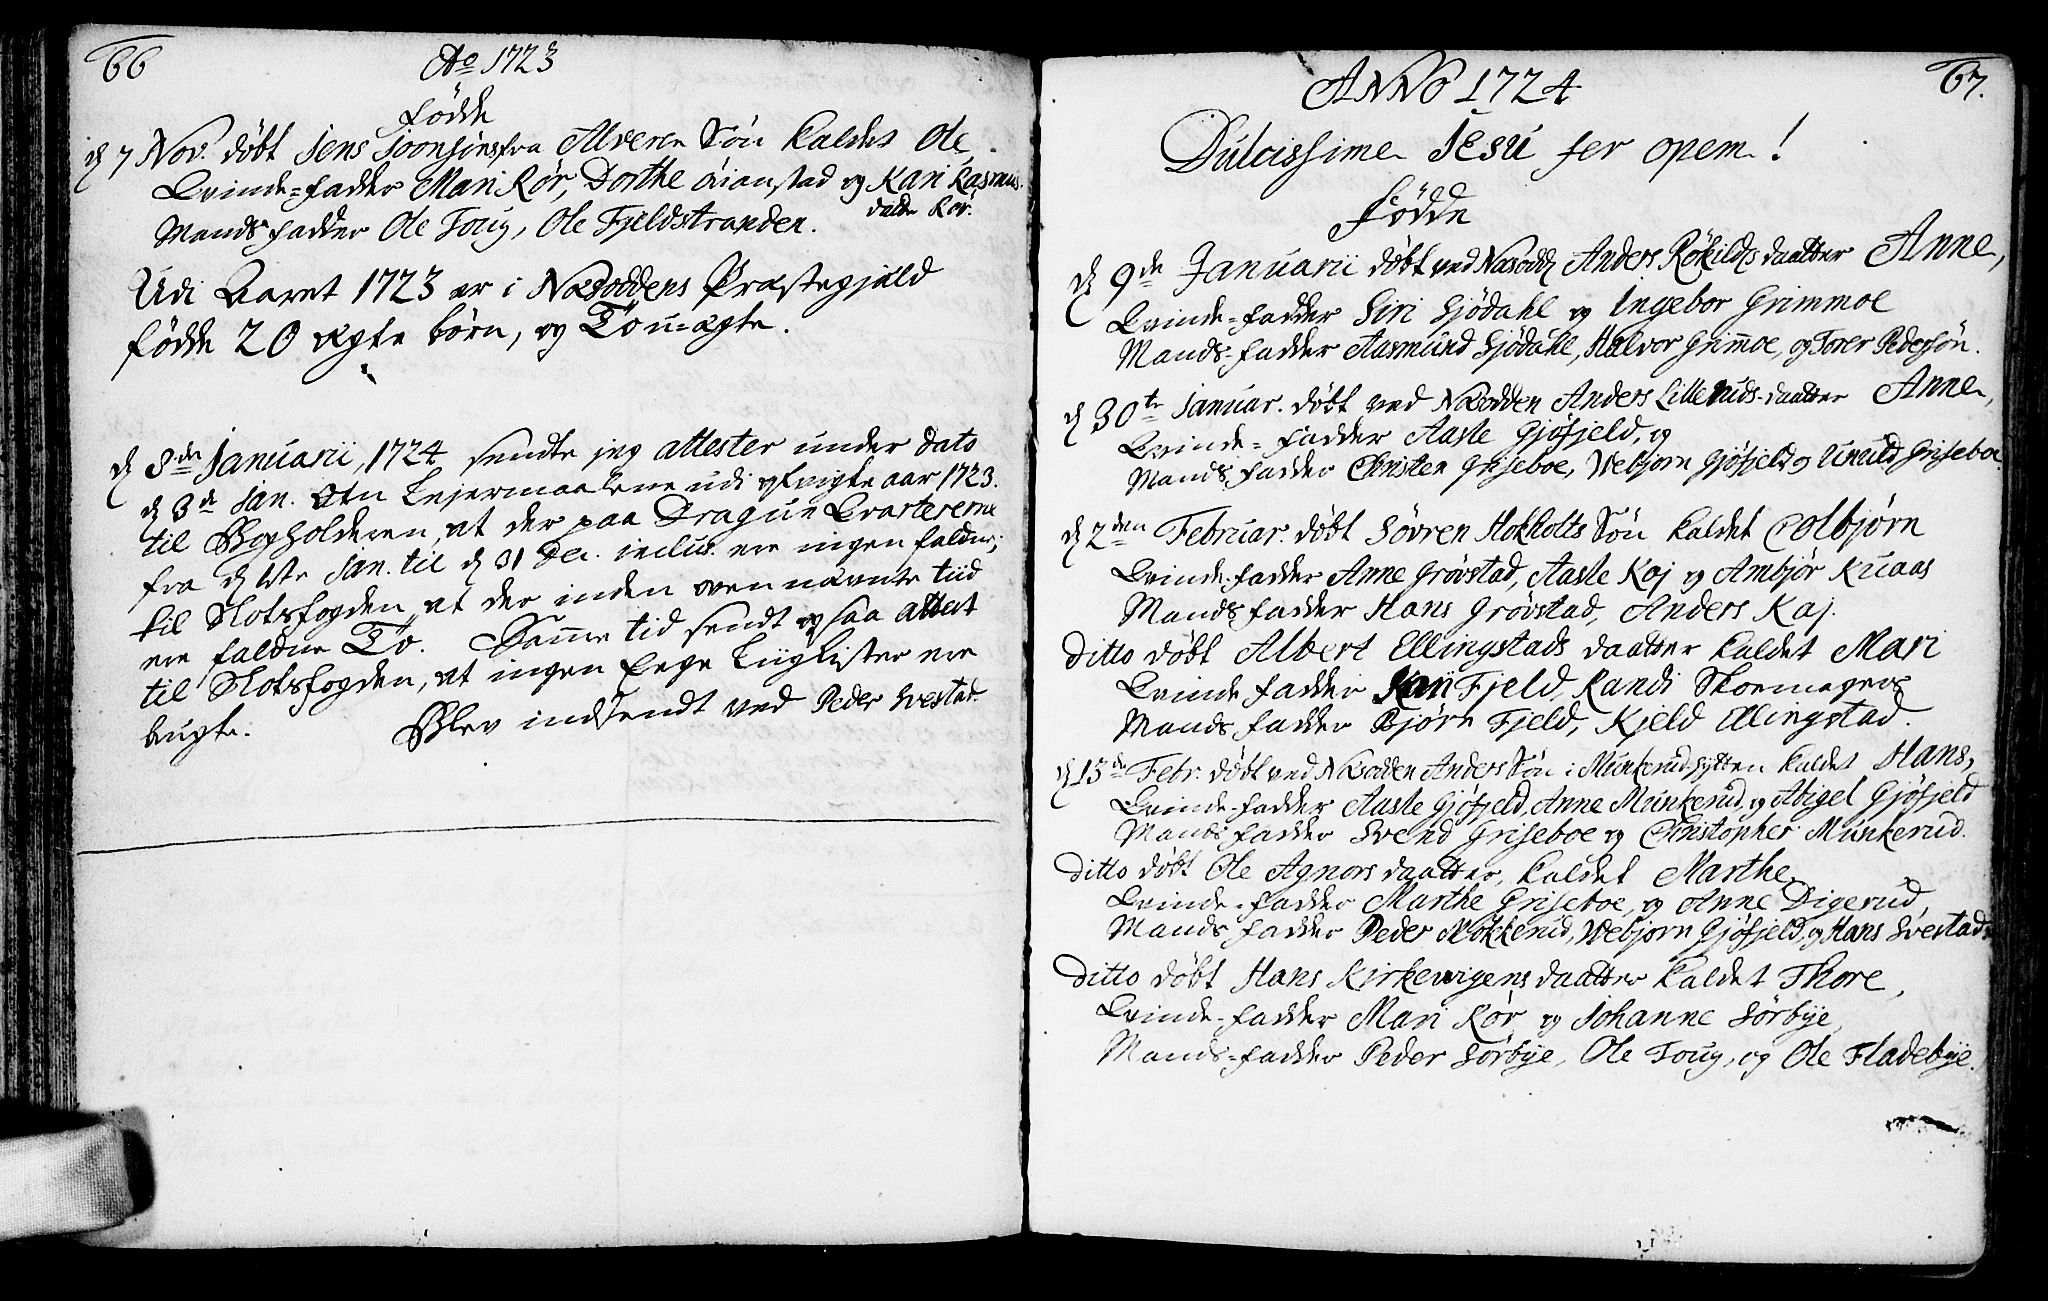 66
Ao 1723
Fødde
d 7 Nov. døbt Jens Joensens fra Alveren Søn kaldet Ole
Qvinde-fadder Mari Rør, Dorthe Oianstad og Kari Rasmus-
datter Rør.
Mands fadder Ole Toug, Ole Fjeldstranden.
Udi Aaret 1723 er i Næsoddens Præstegjæld
fødde 20 ægte børn, og To u-ægte.
d 8de Januarii, 1724 sendte jeg attester under dato
d 3de Jan. om Lejermaalene udi afvigte aar 1723.
til Bogholderen, at der paa Dragun Qvartererne
fra d 1ste Jan. til d 31 Dec. inclus. ere ingen faldne;
til Slotsfogden, at der inden ovennævnte tiid
ere faldne To. Samme tid sendt og saa attest
til Slotsfogden, at ingen Eege Liigkister ere
brugte. Blev indsendt ved Peder Svestad.
67.
ANNO 1724
Dulcissime Jesu fer opem!
Fødde
d 9de Januarii døbt ved Næsodd Anders Røkilds daatter Anne,
Qvinde-fadder Siri Sjødahl og Ingebor Grimmoe
Mands-fadder Aasmund Sjødahl, Halvor Grimoe, og Torer Pedersøn.
d 30te Januar. døbt ved Næsodden Anders Lilleruds-daatter Anne,
Qvinde-fadder Aaste Gjøfjeld, og
Mands fadder Christen Griseboe, Webjørn Gjøfjeld og Griseboe.
d 2den Februar. døbt Søvren Hokholts Søn kaldet Colbjørn
Qvinde-fadder Anne Grøvstad, Aaste Kaj og Ambjør Kuaas
Mands fadder Hans Grøvstad, Anders Kaj.
Ditto døbt Albert Ellingstads daatter kaldet Mari
Qvinde fadder Kari Fjeld, Randi Skoemagers
Mands fadder Bjørn Fjeld, Kjeld Ellingstad.
d 13de Febr. døbt ved Næsodden Anders Søn i Munkerud-hytten kaldet Hans,
Qvinde-fadder Aaste Gjøfjeld, Anne Munkerud, og Abigel Gjøfjeld
Mands fadder Svend Griseboe og Christopher Munkerud.
Ditto døbt Ole Agnors daatter, kaldet Marthe,
Qvinde-fadder Marthe Griseboe, og Anne Digerud,
Mands fadder Peder Mokkerud, Webjørn Gjøfjeld, og Hans Svestad,
Ditto døbt Hans Kirkevigens daatter kaldet Thore,
Qvinde-fadder Mari Rør og Johanne Sørbye,
Mands-fadder Peder Sørbye, Ole Toug, og Ole Fladebye.